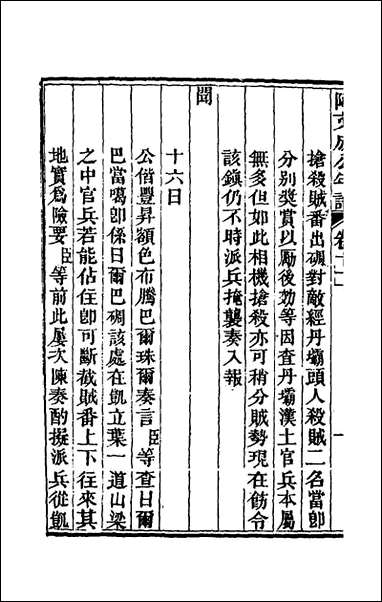 阿文成公年譜 卷十一
搶殺賊番出碉對敵經丹壩頭人殺賊二名當卽
分别奬賞以勵後効等因查丹壩漢土官兵本屬
無多但如此相機搶殺亦可稍分賊勢現在飭令
該鎭仍不時派兵掩襲奏入報
聞
十六日
公偕豐昇額色布騰巴爾珠爾奏言臣等查日爾
巴當噶卽係日爾巴碉該處在凱立葉一道山梁
之中官兵若能佔住卽可斷截賊番上下往來其
地實爲險要臣等前此屢次陳奏酌擬派兵從凱